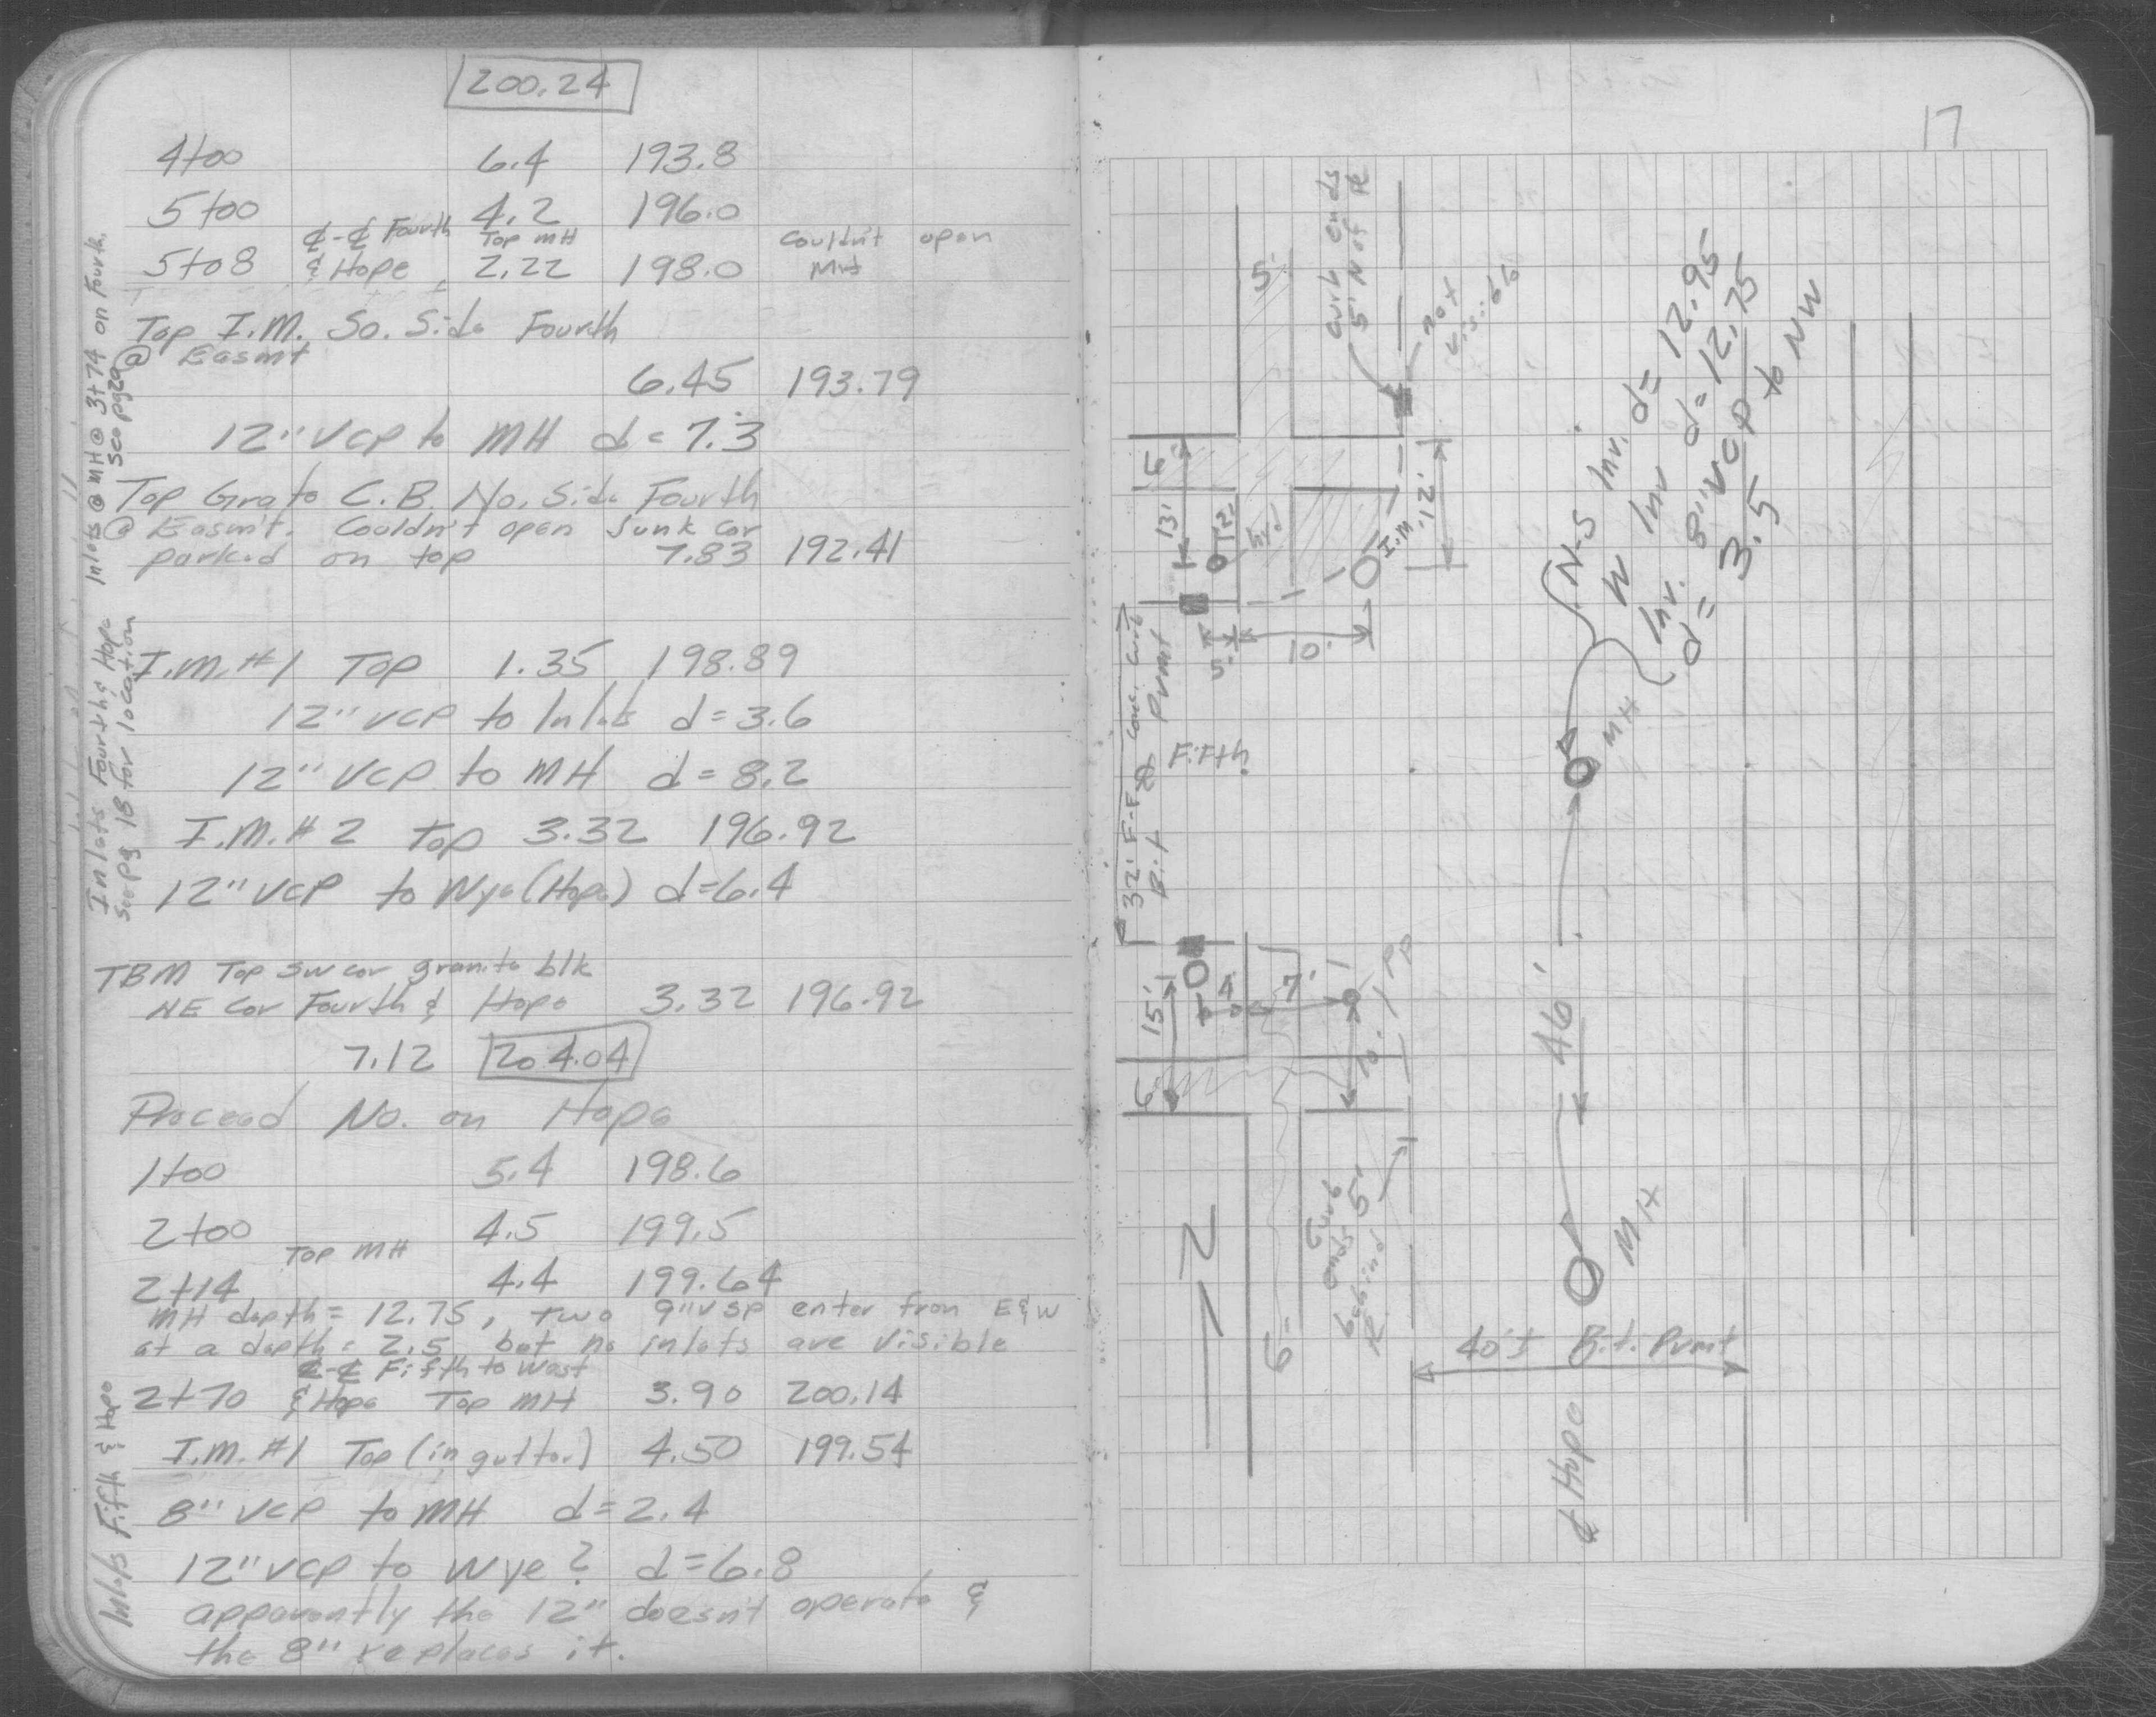 200.24
4+00 6.4 193.8
5+00 4.2 196.0
₵-₵ Fourth Top MH Couldn't open
5+08 & Hope 2.22 198.0 MH
Top I.M. So. Side Fourth
@ Easmt
6.45 193.79
12" VCP to MH d = 7.3
Top Grate C.B. No. Side Fourth
@ Easm't. Couldn't open Junk car
parked on top 7.83 192.41
Inlets @ MH @ 3+74 on Fourth.
See pg 20
I.M. #1 Top 1.35 198.89
12" VCP to Inlets d = 3.6
12" VCP to MH d = 8.2
I.M. # 2 top 3.32 196.92
12" VCP to Wye (Hope) d=6.4
Inlets Fourth & Hope
See pg 18 for location
TBM Top SW cor granite blk
NE Cor Fourth & Hope 3.32 196.92
7.12 204.04
Proceed No. on Hope
1+00 5.4 198.6
2+00 4.5 199.5
Top MH
2+14 4.4 199.64
MH depth = 12.75, two 9" VSP enter from E&W
at a depth = 2.5 but no inlets are visible
₵-₵ Fifth to West
2+70 & Hope Top MH 3.90 200.14
I.M. #1 Top (in gutter) 4.50 199.54
8" VCP to MH d = 2.4
12" VCP to Wye ? d = 6.8
apparently the 12" doesn't operate &
the 8" replaces it.
Inlets Fifth & Hope
17
5'
curb ends
5' N of PL
not
visible
6'
13'
12'
hyd
I.M.
12'
5'
10'
N-S Inv. d= 12.95
W Inv d= 12.75
Inv. 8" VCP to NW
d= 3.5
MH
32' F-F conc. curb
Bit Pvmt
Fifth
15'
4'
7'
PP
10'
6'
46'
N
6'
Curb
ends 5'
behind
PL
MH
40'± Bit. Pvmt
₵ Hope